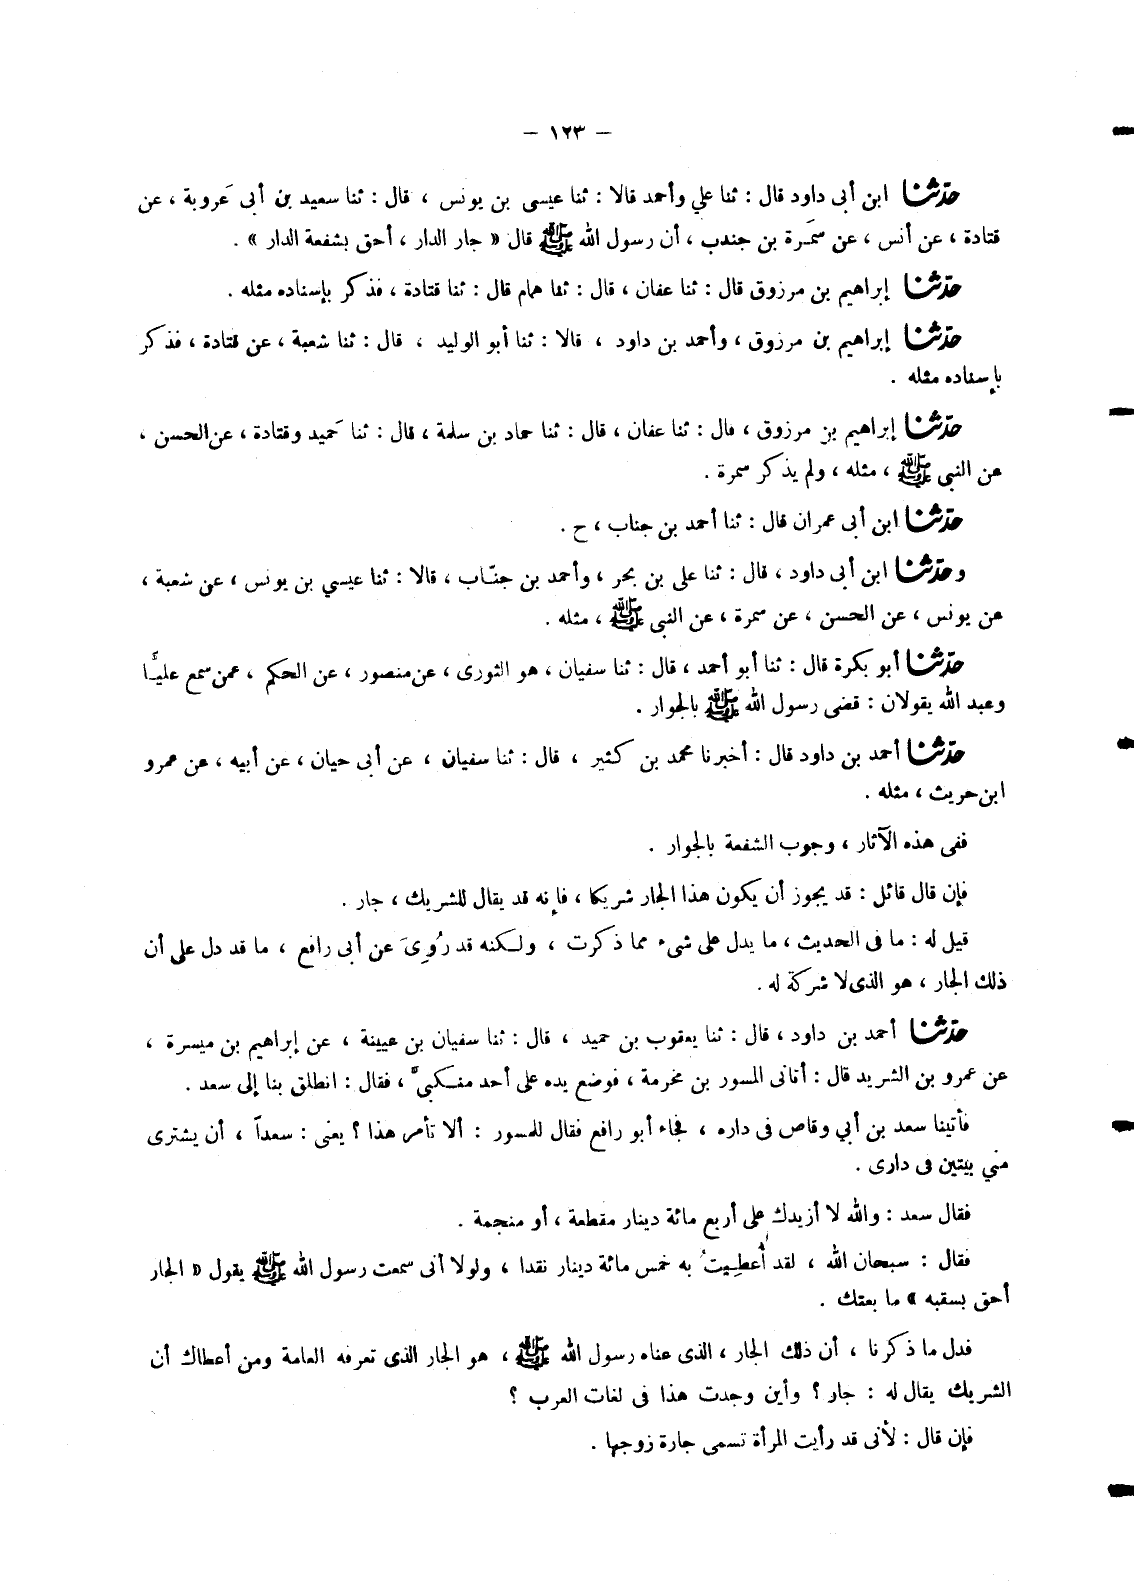 — ١٢٣ —
حدّثنا ابن أبى داود قال : ثنا علي وأحمد قالا : ثنا عيسى بن يونس ، قال : ثنا سعيد بن أبى عَروبة ، عن
قتادة ، عن أنس ، عن سمَرة بن جندب ، أن رسول الله ﷺ قال « جار الدار ، أحق بشفعة الدار » .
حدّثنا إبراهيم بن مرزوق قال : ثنا عفان ، قال : ثنا همام قال : ثنا قتادة ، فذكر بإسناده مثله .
حدّثنا إبراهيم بن مرزوق ، وأحمد بن داود ، قالا : ثنا أبو الوليد ، قال : ثنا شعبة ، عن قتادة ، فذكر
بإسناده مثله .
حدّثنا إبراهيم بن مرزوق ، قال : ثنا عفان ، قال : ثنا حماد بن سلمة ، قال : ثنا حَميد وقتادة ، عن الحسن ،
عن النبى ﷺ ، مثله ، ولم يذكر سمرة .
حدّثنا ابن أبى عمران قال : ثنا أحمد بن جناب ، ح .
وحدّثنا ابن أبى داود ، قال : ثنا على بن بحر ، وأحمد بن جنّاب ، قالا : ثنا عيسي بن يونس ، عن شعبة ،
عن يونس ، عن الحسن ، عن سمرة ، عن النبى ﷺ ، مثله .
حدّثنا أبو بكرة قال : ثنا أبو أحمد ، قال : ثنا سفيان ، هو الثورى ، عن منصور ، عن الحكم ، عمن سمع عليًّا
وعبد الله يقولان : قضى رسول الله ﷺ بالجوار .
حدّثنا أحمد بن داود قال : أخبرنا محمد بن كثير ، قال : ثنا سفيان ، عن أبى حيان ، عن أبيه ، عن عمرو
ابن حريث ، مثله .
ففى هذه الآثار ، وجوب الشفعة بالجوار .
فإن قال قائل : قد يجوز أن يكون هذا الجار شريكا ، فإنه قد يقال للشريك ، جار .
قيل له : ما فى الحديث ، ما يدل على شىء مما ذكرت ، ولكنه قد رُوِىَ عن أبى رافع ، ما قد دل على أن
ذلك الجار ، هو الذى لا شركة له .
حدّثنا أحمد بن داود ، قال : ثنا يعقوب بن حميد ، قال : ثنا سفيان بن عيينة ، عن إبراهيم بن ميسرة ،
عن عمرو بن الشريد قال : أتانى المسور بن مخرمة ، فوضع يده على أحد منكبىّ ، فقال : انطلق بنا إلى سعد .
فأتينا سعد بن أبي وقاص فى داره ، فجاء أبو رافع فقال للمسور : ألا تأمر هذا ؟ يعنى : سعداً ، أن يشترى
مني بيتين فى دارى .
فقال سعد : والله لا أزيدك على أربع مائة دينار مقطعة ، أو منجمة .
فقال : سبحان الله ، لقد أُعطِيتُ به خمس مائة دينار نقدا ، ولولا أنى سمعت رسول الله ﷺ يقول « الجار
أحق بسقبه » ما بعتك .
فدل ما ذكرنا ، أن ذلك الجار ، الذى عناه رسول الله ﷺ ، هو الجار الذى تعرفه العامة ومن أعطاك أن
الشريك يقال له : جار ؟ وأين وجدت هذا فى لغات العرب ؟
فإن قال : لأنى قد رأيت المرأة تسمى جارة زوجها .